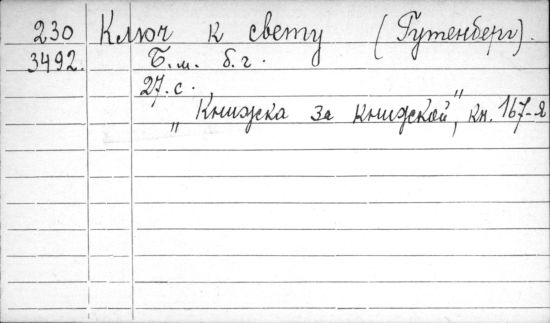 230 Ключ к свету (Гутенберг).
3492. Б.м. б.г.
27.с.
„Книжка за книжкой", кн. 167-я